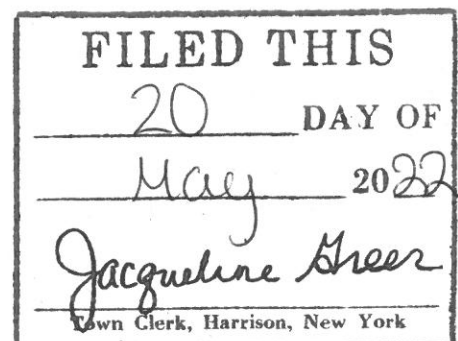 FILED THIS
20 DAY OF
May 2022
Jacqueline Greer
Town Clerk, Harrison, New York